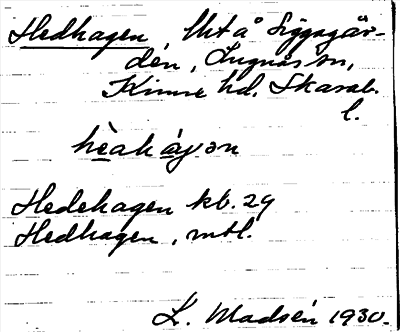 Hedhagen, Utå Siggagår-
den, Lugnås sn,
Kinne hd. Skarab.
l.
hèahá̱gən
Hedehagen kb. 29
Hedhagen, mtl.
L. Madsén 1930.